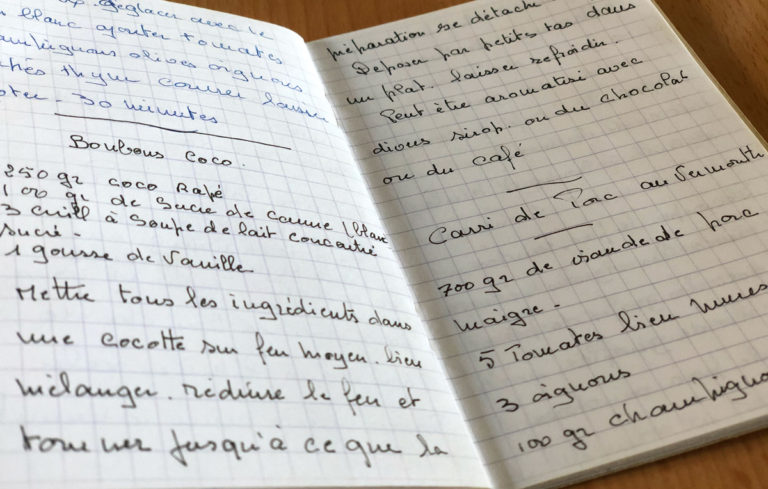 Déglacer avec le
blanc ajouter tomates
champignons olives oignons
thym couvrir laisser
30 minutes
Bonbons coco.
250 gr coco Rapé
100 gr de Sucre de canne (blanc
3 cuill à soupe de lait concentré
sucré.
1 gousse de vanille
Mettre tous les ingrédients dans
une cocotte sur feu moyen. bien
mélanger. réduire le feu et
tourner jusqu'à ce que la
préparation se détache
Deposer par petits tas dans
un plat. laisser refroidir.
Peut être aromatisé avec
divers sirop. ou du chocolat
ou du café
Carri de Porc au Vermouth
700 gr de viande de porc
maigre.
5 Tomates bien mures
3 oignons
100 gr champigno